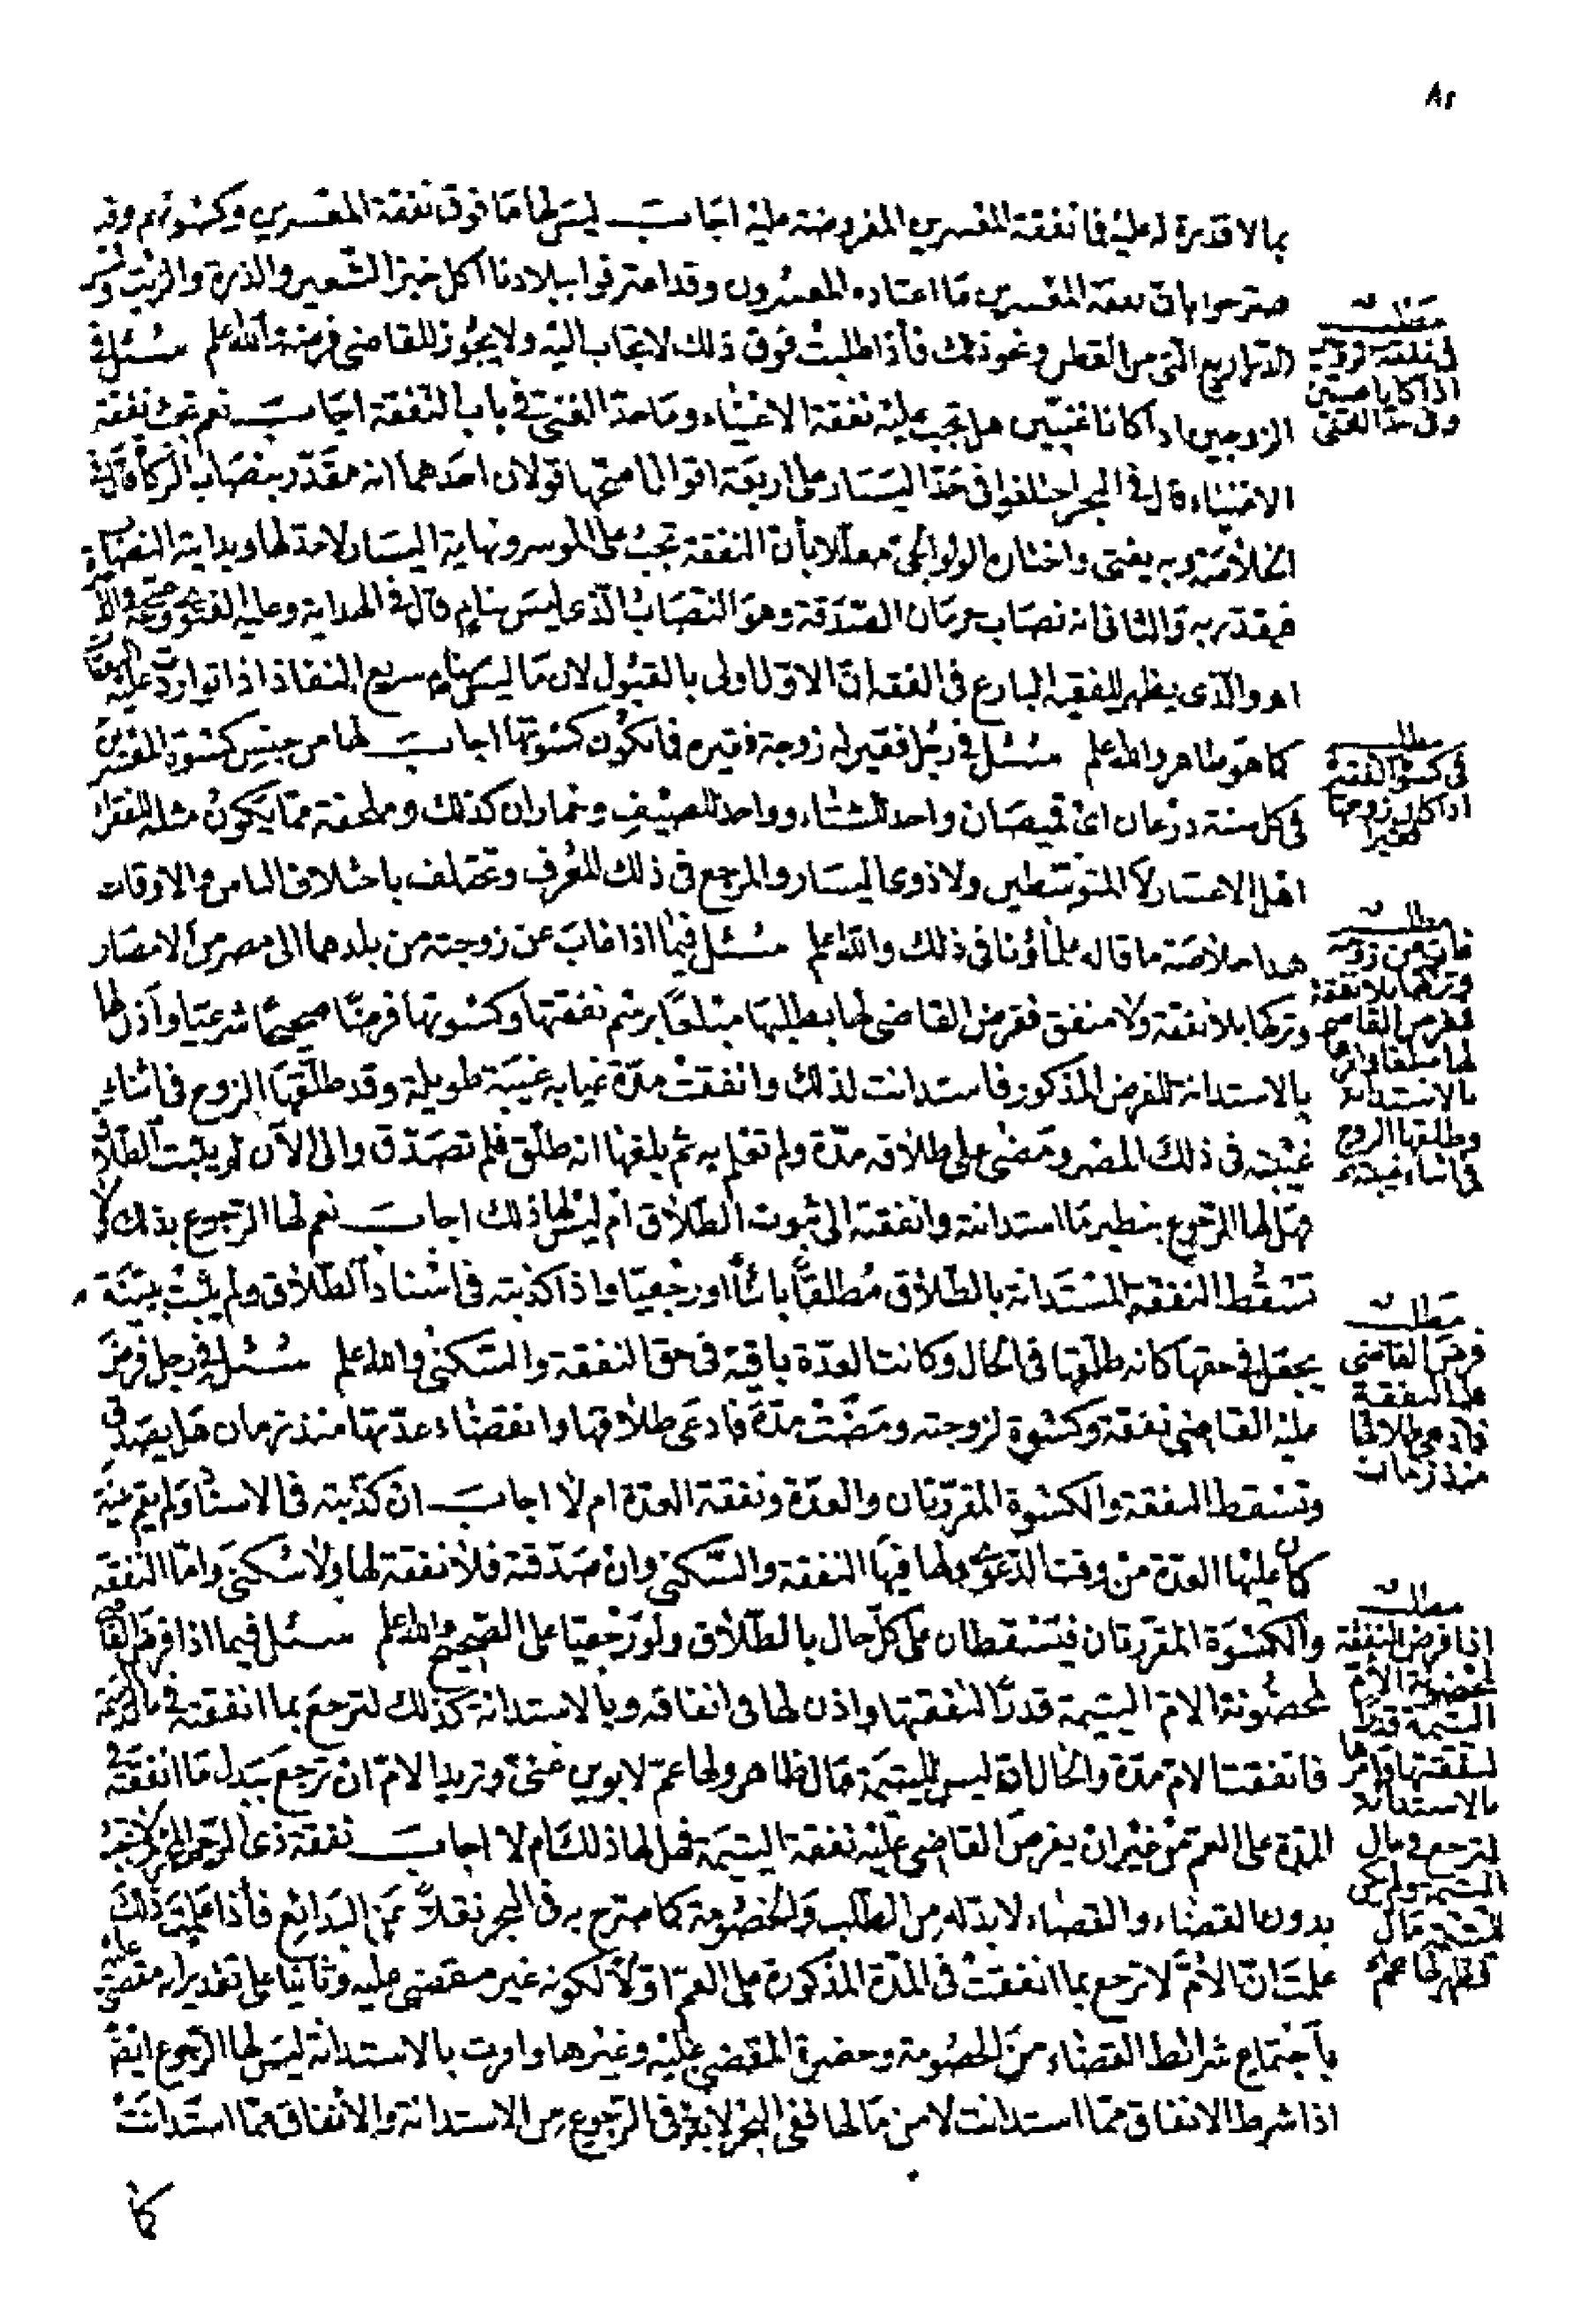 ٨٢
بما لا قدرة له عليه فما نفقة المعسرين المفروضة عليه اجاب ليس لها ما فوق نفقة المعسرين وكسوتهم وقد
صرحوا بان نفقة المعسرين ما اعتاده المعسرون وقد اعترفوا ببلادنا اكل خبز الشعير والذرة والزيت
التي من القطن ونحو ذلك فأذا طلبت فوق ذلك لا تجاب اليه ولا يجوز للقاضي فرضه والله اعلم سئل في
الزوجين اذا كانا غنيين هل تجب عليه نفقة الاغنياء وما حد الغنى في باب النفقة اجاب نعم تجب نفقة
الاغنياء قال في البحر اختلفوا في حد اليسار على اربعة اقوال المصحح منها قولان احدهما انه مقدر بنصاب الزكاة قال في
الخلاصة وبه يفتى واختاره الولوالجي معللا بأن النفقة تجب على الموسر ونهاية اليسار لا حد لها وبدايته النصاب
فيقدر به والثاني انه نصاب حرمان الصدقة وهو النصاب الذي ليس بنام قال في الهداية وعليه الفتوى وصححه في الذخيرة
اهـ والذي يظهر للفقيه البارع في الفقه ان الاول اولى بالقبول لان ما ليس بنام سريع النفاذ اذا توارد عليه
كما هو ظاهر والله اعلم سئل في رجل فقير له زوجة فقيرة فما تكون كسوتها اجاب لها من جنس كسوة المعسرين
في كل سنة درعان اي قميصان واحد للشتاء وواحد للصيف وخماران كذلك وملحفة مما يكون مثله للفقراء
اهل الاعسار لا المتوسطين ولا ذوي اليسار والمرجع في ذلك للعرف وتختلف باختلاف الناس والاوقات
هذا خلاصة ما قاله علماؤنا في ذلك والله اعلم سئل فيما اذا غاب عن زوجته من بلدهما الى مصر من الامصار
وتركها بلا نفقة ولا منفق ففرض القاضي لها بطلبها مبلغا برسم نفقتها وكسوتها فرضا صحيحا شرعيا واذن لها
بالاستدانة للفرض المذكور فاستدانت لذلك وانفقت مدة غيابه غيبة طويلة وقد طلقها الزوج في اثناء
غيبته في ذلك المصر ومضى على طلاقه مدة ولم تعلم به ثم بلغها انه طلق فلم تصدق والى الآن لم يثبت الطلاق
فهل لها الرجوع بنظير ما استدانته وانفقته الى ثبوت الطلاق ام ليس لها ذلك اجاب نعم لها الرجوع بذلك ولا
تسقط النفقة المستدانة بالطلاق مطلقا بائنا او رجعيا واذا كذبته في اسناد الطلاق ولم يثبت ببينة
يجعل في حقها كانه طلقها في الحال وكانت العدة باقية في حق النفقة والسكنى والله اعلم سئل في رجل فرض
عليه القاضي نفقة وكسوة لزوجته ومضت مدة فادعى طلاقها وانقضاء عدتها منذ زمان هل يصدق
وتسقط النفقة والكسوة المقررتان والعدة ونفقة العدة ام لا اجاب ان كذبته في الاسناد ولم يقم بينة
كان عليها العدة من وقت الدعوى ولها فيها النفقة والسكنى وان صدقته فلا نفقة لها ولا سكنى واما النفقة
والكسوة المقررتان فيسقطان على كل حال بالطلاق ولو رجعيا على الصحيح والله اعلم سئل فيما اذا فرض القاضي
لمحضونة الام اليتيمة قدرا لنفقتها واذن لها في انفاقه وبالاستدانة كذلك لترجع بما انفقته في مال اليتيمة
فانفقت الام مدة والحال ان ليس لليتيمة مال ظاهر ولها عم لابوين غني وتريد الام ان ترجع ببدل ما انفقته في
المدة على العم من غير ان يفرض القاضي عليه نفقة اليتيمة فهل لها ذلك ام لا اجاب نفقة ذي الرحم المحرم لا تجب
بدون القضاء والقضاء لا بد له من الطلب والخصومة كما صرح به في البحر نقلا عن البدائع فأذا علمت ذلك
علمت ان الأم لا ترجع بما انفقت في المدة المذكورة على العم اولا لكونه غير مقضي عليه وثانيا على تقدير انه مقضي عليه
بأجتماع شرائط القضاء من الخصومة وحضرة المقضي عليه وغيرها وامرت بالاستدانة ليس لها الرجوع ايضا
اذا شرط الانفاق مما استدانت لا من مالها ففي البحر لا بد في الرجوع من الاستدانة والانفاق مما استدانت
كما
مطلب
في نفقة الزوجين
اذا كانا غنيين
وفي حد الغنى
مطلب
في كسوة الفقيرة
اذا كان زوجها
فقيرا
مطلب
غاب عن زوجته
وتركها بلا نفقة
ففرض القاضي
لها مبلغا وامرها
بالاستدانة
وطلقها الزوج
في اثناء غيبته
مطلب
فرض القاضي
عليه النفقة
فادعى طلاقها
منذ زمان
مطلب
اذا فرض النفقة
لمحضونة الام
اليتيمة قدرا
لنفقتها وامرها
بالاستدانة
لترجع في مال
اليتيمة ولم يكن
لليتيمة مال
فظهر لها عم